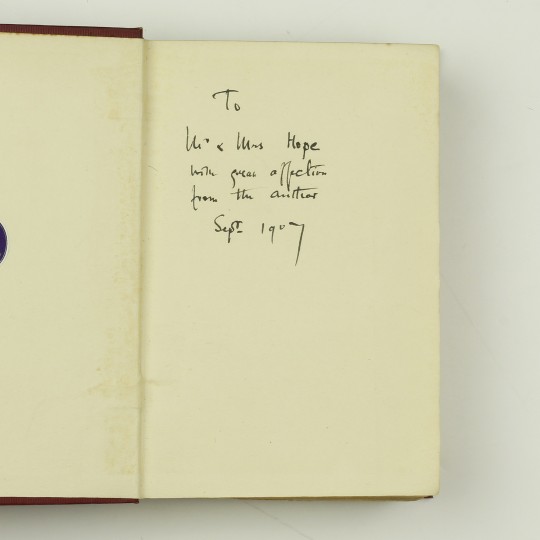 To
Mr & Mrs Hope
with great affection
from the author
Sept 1907